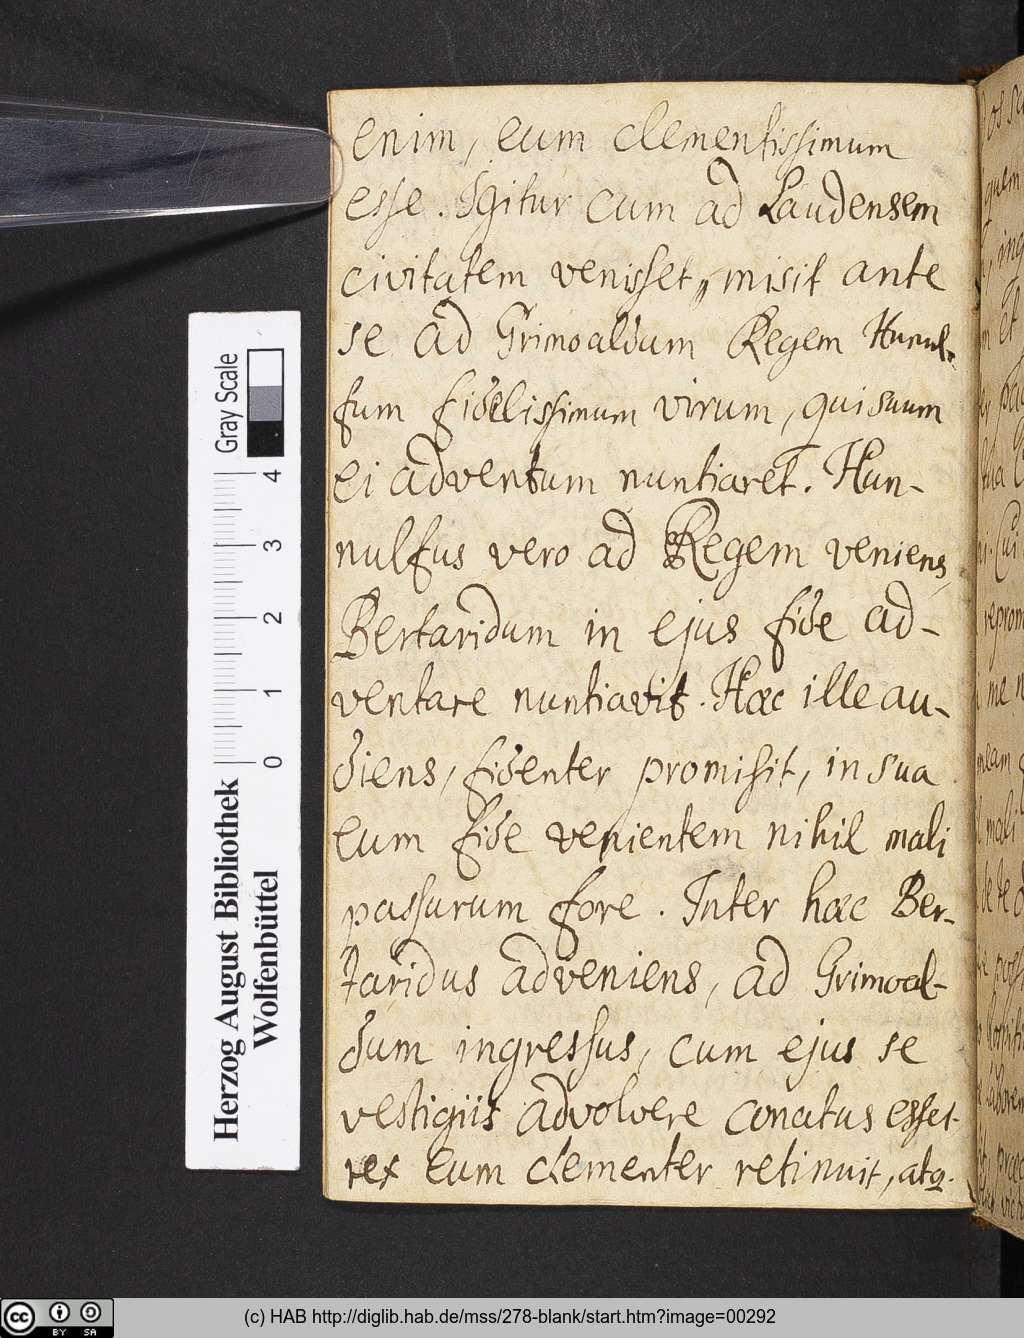 enim, eum clementissimum
esse. Igitur cum ad Laudensem
civitatem venisset, misit ante
se ad Grimoaldum Regem Hunul-
fum fidelissimum virum, qui suum
ei adventum nuntiaret. Hun-
nulfus vero ad Regem veniens,
Bertaridum in ejus fide ad-
ventare nuntiavit. Hæc ille au-
diens, fidenter promisit, in sua
eum fide venientem nihil mali
passurum fore. Inter hæc Ber-
taridus adveniens, ad Grimoal-
dum ingressus, cum ejus se
vestigiis advolvere conatus esset
rex eum clementer retinuit, atq.
Herzog August Bibliothek
Wolfenbüttel
0 1 2 3 4
Gray Scale
quem
et
me
mali
de te
cc BY SA
(c) HAB http://diglib.hab.de/mss/278-blank/start.htm?image=00292